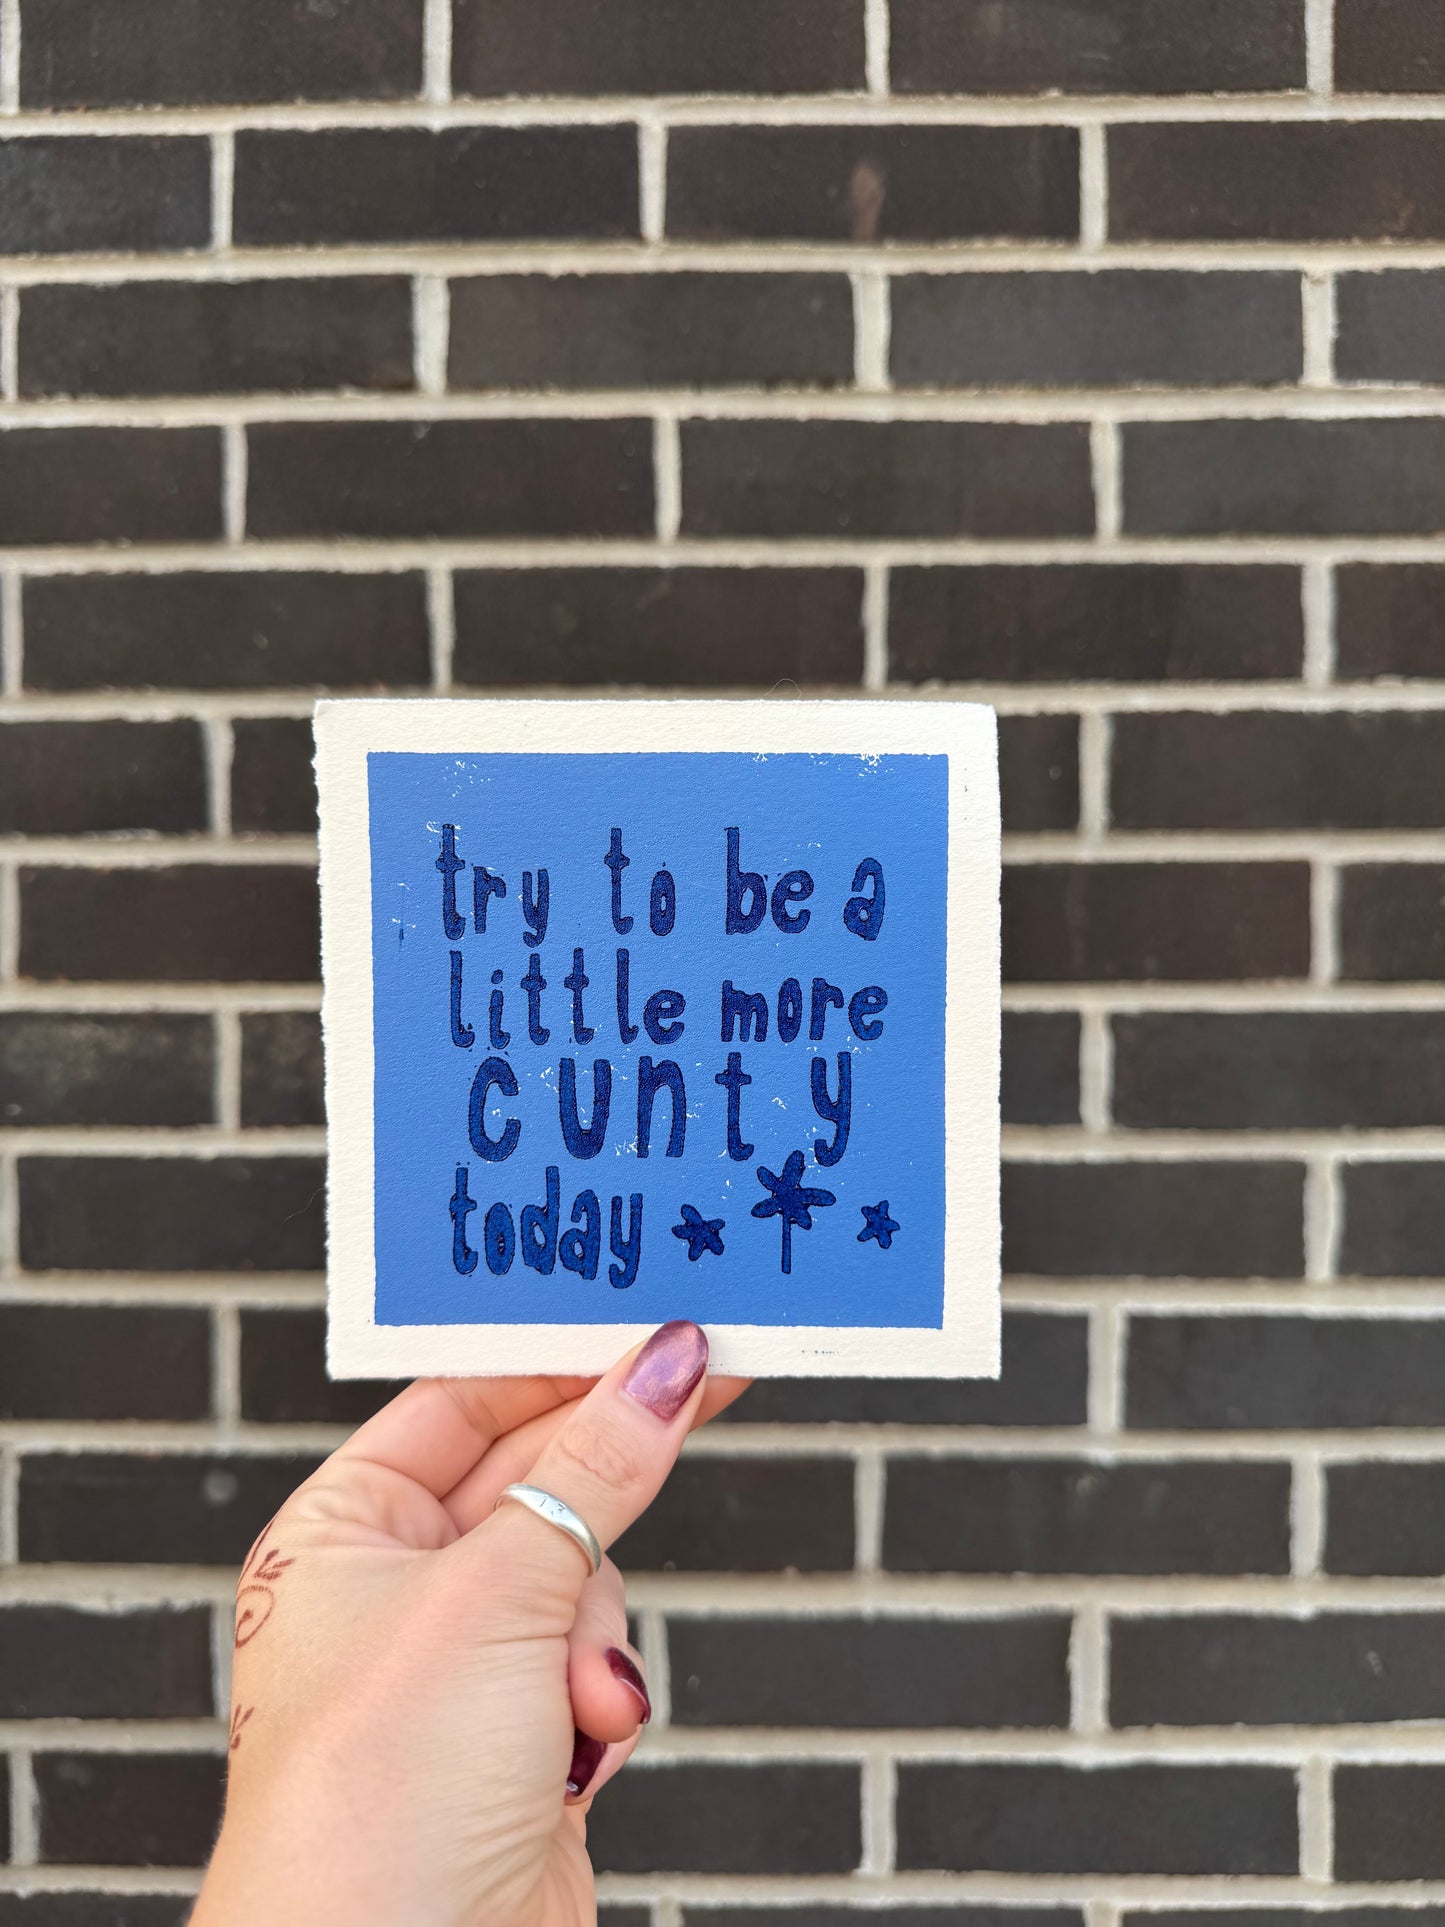 try to be a
little more
cunty
today
13